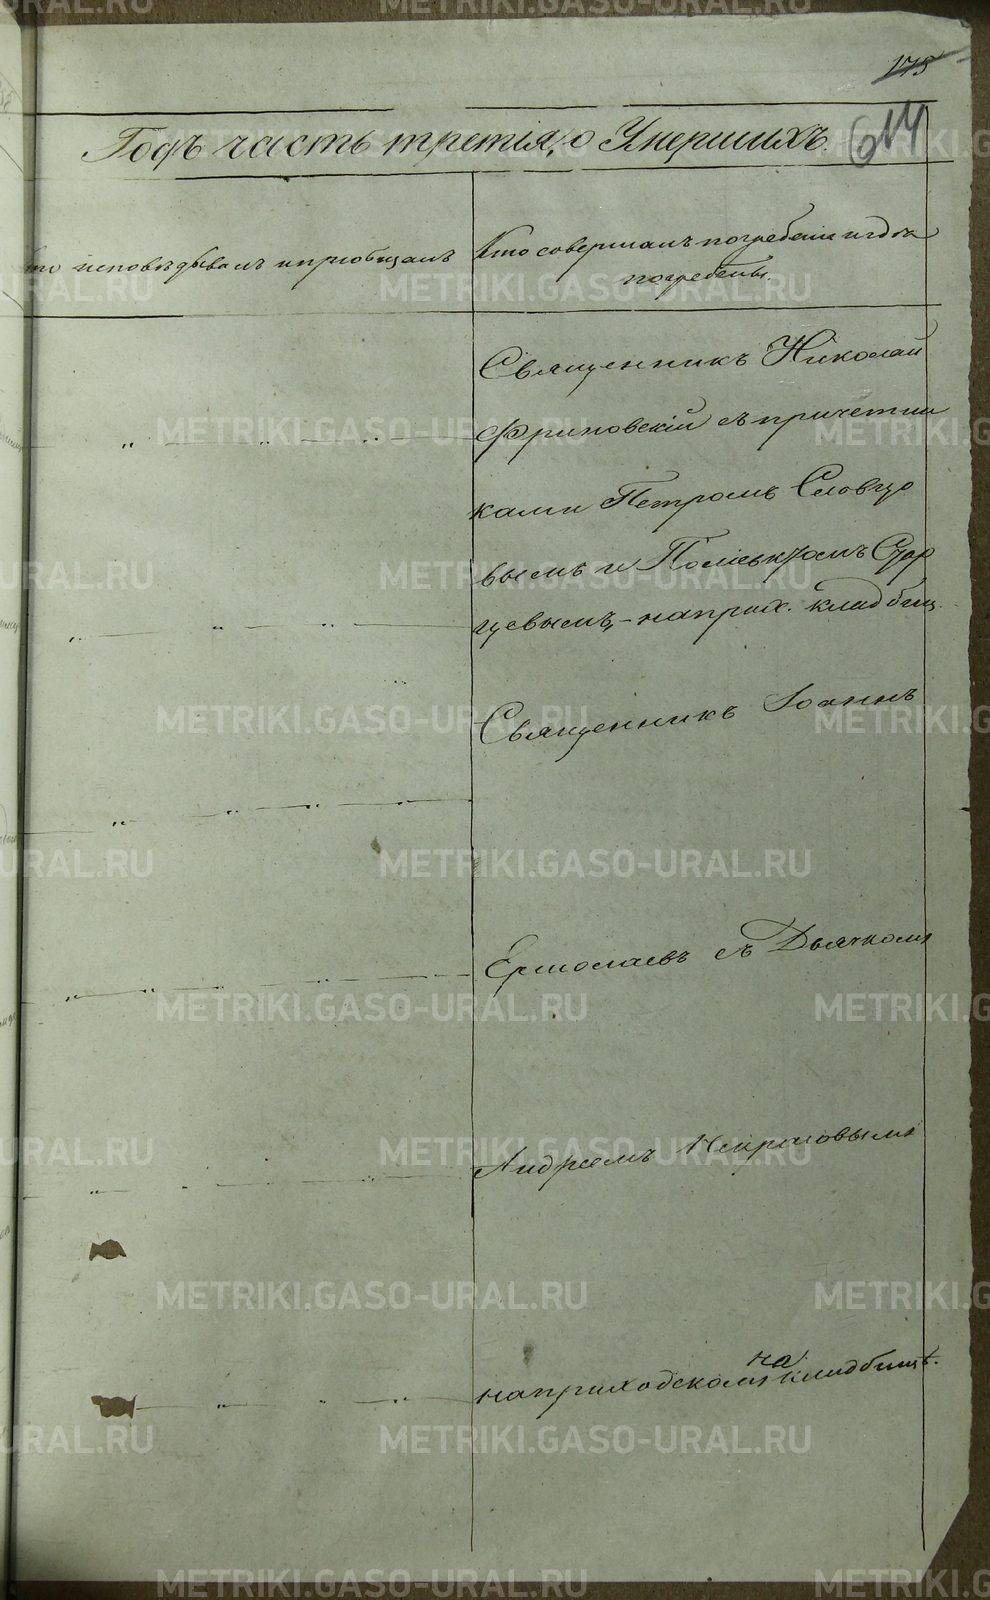 175
Годъ часть третія, о Умершихъ.
614
кто исповѣдывалъ и пріобщалъ
Кто совершалъ погребеніе и гдѣ
погребены.
Священникъ Николай
съ причетни
ками Петромъ Словцо
вымъ и
цевымъ, - на прих. кладбищ.
Священникъ Іоаннъ
Ермолаевъ съ Дьячкомъ
Андреемъ Некрасовымъ
на приходскомъ на кладбищѣ.
METRIKI.GASO-URAL.RU